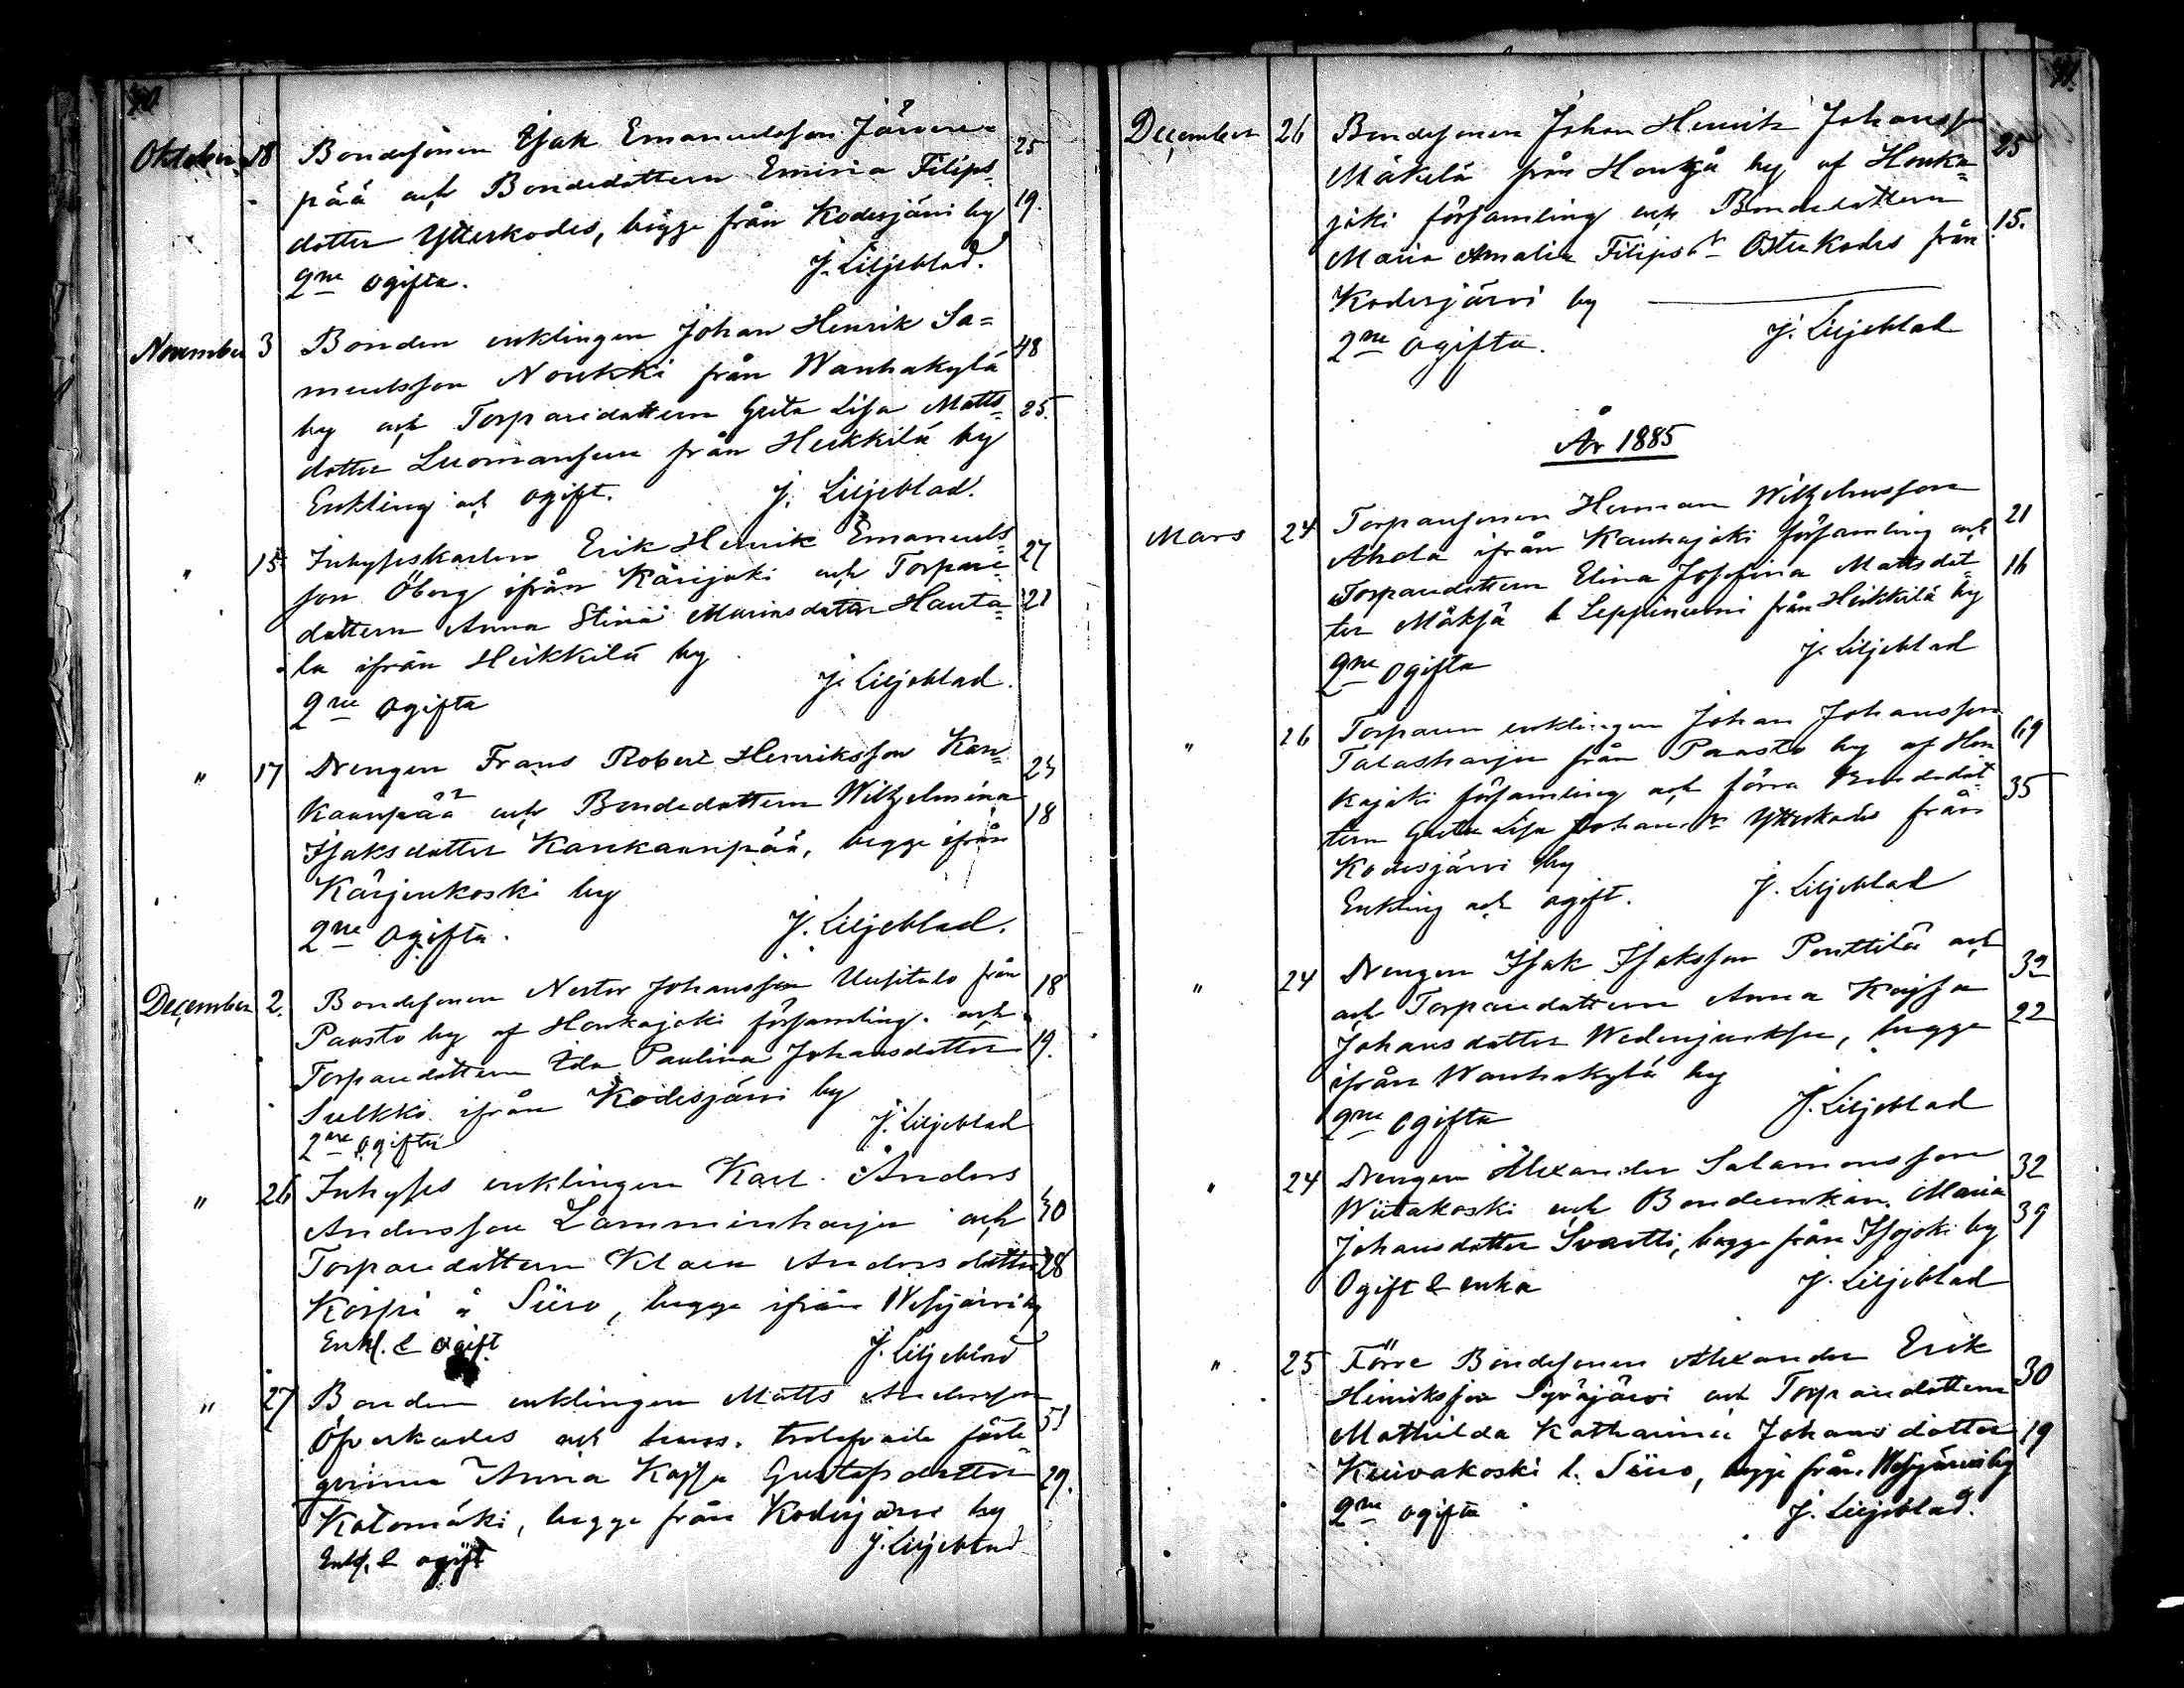 Oktober 18 Bondesonen Isak Emanuelsson Järven= 25
pää och Bondedottern Emina Filips=
dotter Ytterkodes, bägge från Kodesjärvi by 19.
2ne ogifta. J. Liljeblad.
November 3 Bonden enklingen Johan Henrik Sa= 48
muelsson Noukki från Wanhakylä
by och Torparedottern Greta Lisa Matts= 25.
dotter Luomansuu från Heikkilä by
Enkling och ogift. J. Liljeblad.
" 15 Inhyseskarlen Erik Henrik Emanuels= 27
son Öberg ifrån Kärijoki och Torpare=
dottern Anna Stina Mariasdotter Hauta= 21
la ifrån Heikkilä by
2ne ogifta J. Liljeblad.
" 17 Drengen Frans Robert Henriksson Kan= 23
kaanpää och Bondedottern Wilhelmina 18
Isaksdotter Kankaanpää, begge ifrån
Kärjenkoski by
2ne ogifta. J. Liljeblad.
December 2. Bondesonen Nestor Johansson Uusitalo från 18
Paasto by af Honkajoki församling. och
Torparedottern Ida Paulina Johansdotter 19.
Sulkko ifrån Kodesjärvi by
2ne ogifta J. Liljeblad
" 26 Inhyses enklingen Karl Anders
Andersson Lamminharju och 40
Torparedottern Klara Andersdotter 28
Korpi å Siiro, begge ifrån Wesijärvi by
Enkl. & ogift J. Liljeblad
" 27 Bonden enklingen Matts Andersson
Öfverkodes och hans trolofvade fäste= 51
qvinna Anna Kajsa Gustafsdotter 29.
Katomäki, begge från Kodesjärvi by
Enkl. & ogift J. Liljeblad
December 26 Bondesonen Johan Henrik Johansson
Mäkelä från Honkajå by af Honka= 25
joki församling och Bondedottern
Maria Amalia Filipsdr Österkodes från 15.
Kodesjärvi by
2ne ogifta. J. Liljeblad
År 1885
Mars 24 Torparesonen Herman Wilhelmsson
Ahola ifrån Kauhajoki församling och 21
Torparedottern Elina Josefina Mattsdot= 16
ter Mäksä l Leppiniemi från Heikkilä by
2ne ogifta J. Liljeblad
" 26 Torparen enklingen Johan Johansson
Talasharju från Paasto by af Hon 69
kajoki församling och förra Bondedot=
tern Greta Lisa Johansdr Ytterkodes från 35
Kodesjärvi by
Enkling och ogift. J. Liljeblad
" 24 Drengen Isak Isaksson Penttilä och
och Torparedottern Anna Kajsa 32
Johansdotter Wedenjuoksu, begge 22
ifrån Wanhakylä by
2ne ogifta J. Liljeblad
" 24 Drengen Alexander Salamonsson 32
Wiitakoski och Bondeenkan Maria 39
Johansdotter Svartti, begge från Isojoki by
Ogift & enka J. Liljeblad
" 25 Förre Bondesonen Alexander Erik
Henriksson Syväjärvi och Torparedottern 30
Mathilda Katharina Johansdotter 19
Kuivakoski l. Siiro, begge från Wesijärvi by
2ne ogifta J. Liljeblad.